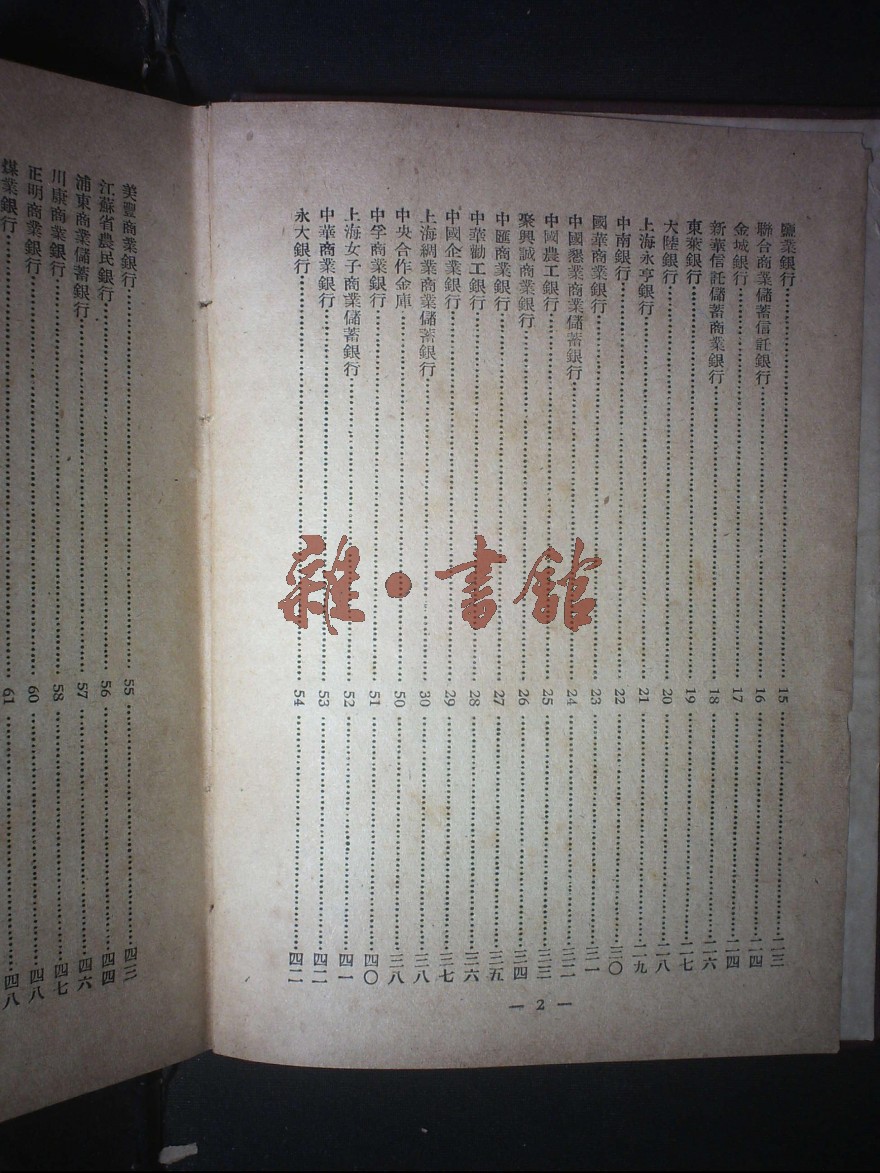 鹽業銀行……15……二三
聯合商業儲蓄信託銀行……16……二四
金城銀行……17……二四
新華信託儲蓄商業銀行……18……二六
東萊銀行……19……二七
大陸銀行……20……二八
上海永亨銀行……21……二九
中南銀行……22……三〇
國華商業銀行……23……三一
中國墾業商業儲蓄銀行……24……三二
中國農工銀行……25……三三
聚興誠商業銀行……26……三四
中匯商業銀行……27……三五
中華勸工銀行……28……三六
中國企業銀行……29……三七
上海綢業商業儲蓄銀行……30……三八
中央合作金庫……50……三八
中孚商業銀行……51……四〇
上海女子商業儲蓄銀行……52……四一
中華商業銀行……53……四二
永大銀行……54……四二
— 2 —
美豐商業銀行……55……四三
江蘇省農民銀行……56……四四
浦東商業儲蓄銀行……57……四六
川康商業銀行……58……四七
正明商業銀行……60……四八
煤業銀行……61……四八
雜·書館